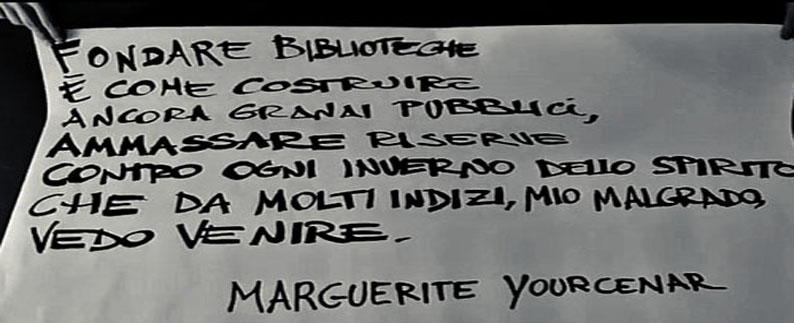 FONDARE BIBLIOTECHE
È COME COSTRUIRE
ANCORA GRANAI PUBBLICI,
AMMASSARE RISERVE
CONTRO OGNI INVERNO DELLO SPIRITO
CHE DA MOLTI INDIZI, MIO MALGRADO,
VEDO VENIRE.
MARGUERITE YOURCENAR